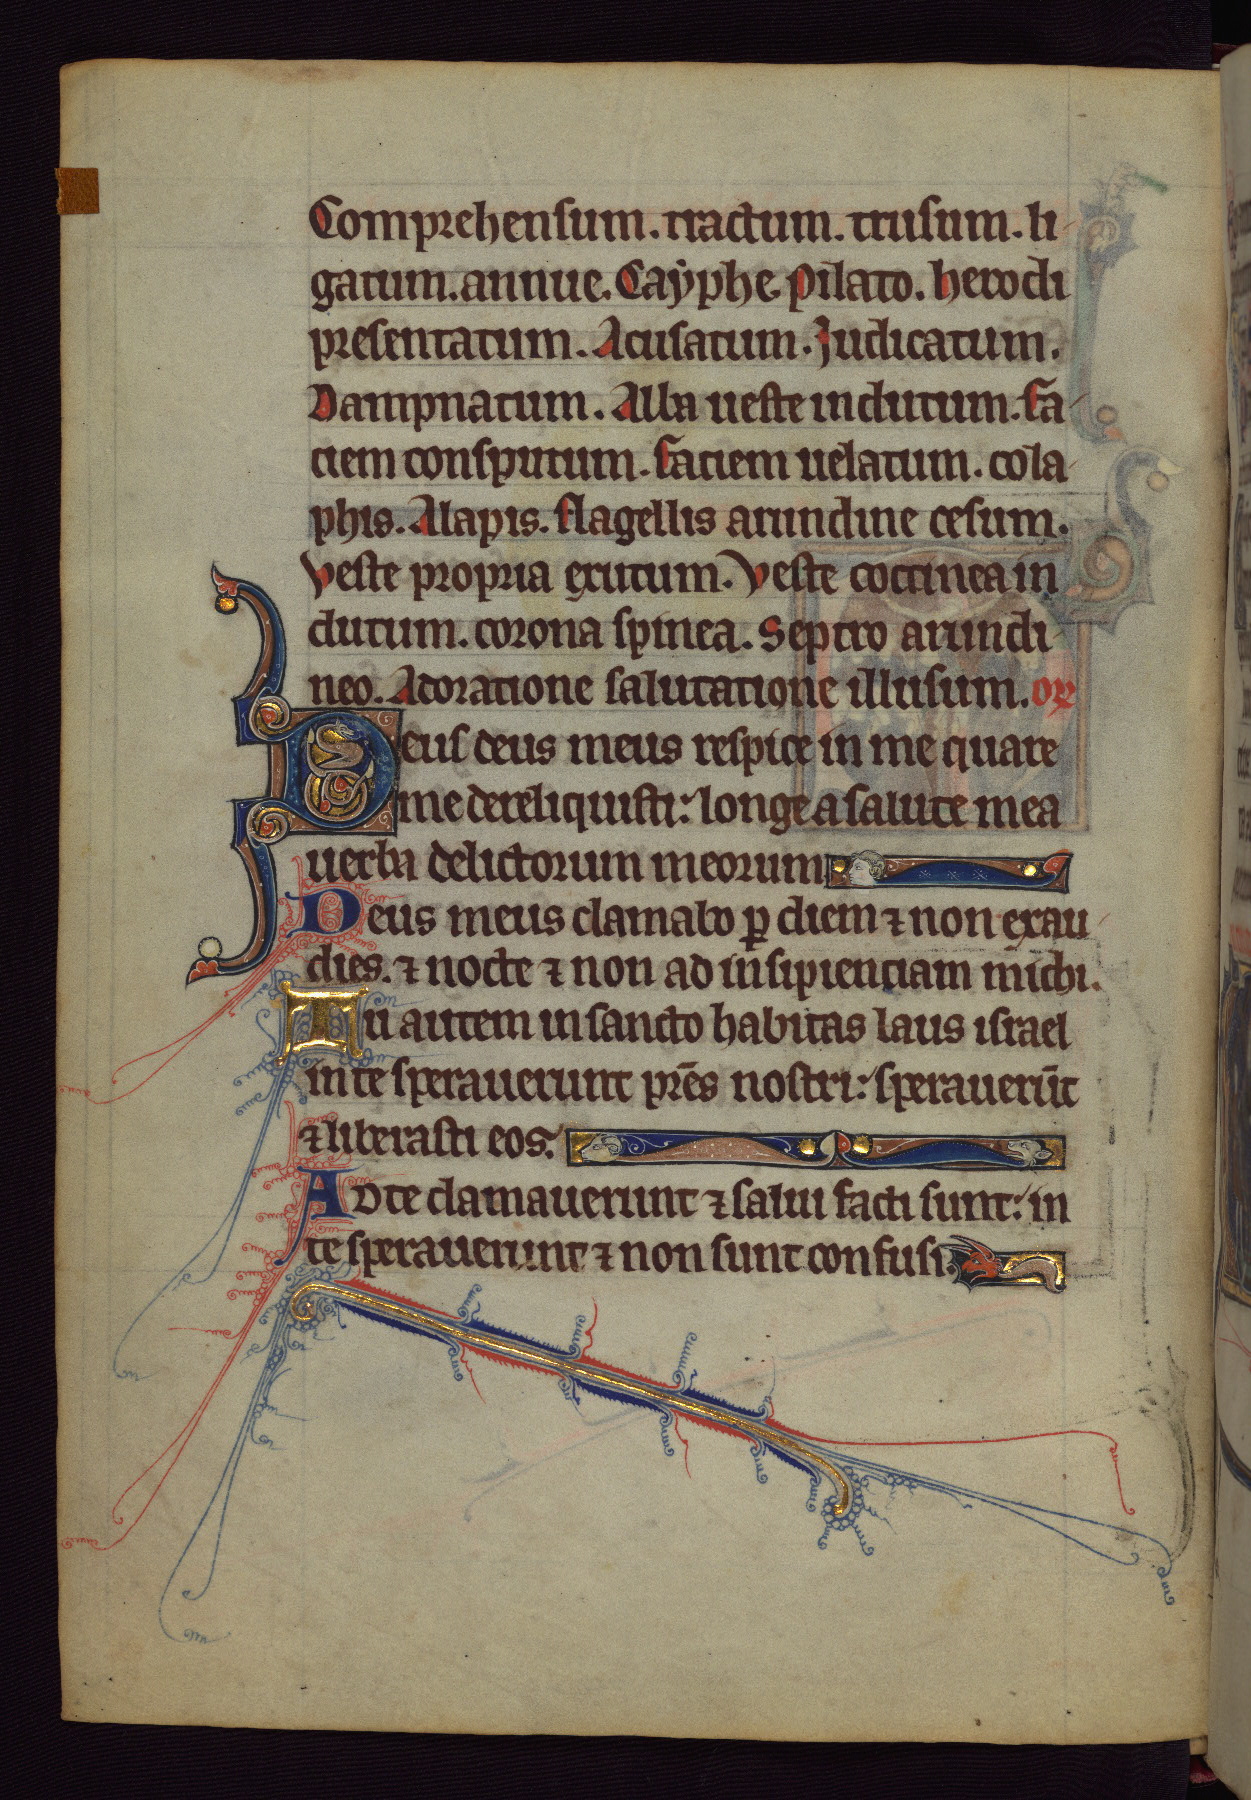 Comprehensum. tractum. trusum. li
gatum. annue. Caẏphe pilato. herodi
presentatum. Acusatum. Judicatum.
Dampnatum. Alba ueste indutum. fa
ciem consputum. faciem uelatum. cola
phis. Alapis. flagellis arundine cesum.
veste propria exutum. Veste coccinea in
dutum. corona spinea. Septro arundi
neo. Adoratione salutatione illusum.
Deus deus meus respice in me quare
me dereliquisti: longe a salute mea
uerba delictorum meorum
Deus meus clamabo ꝑ diem ⁊ non exau
dies. ⁊ nocte ⁊ non ad insipienciam michi.
Tu autem in sancto habitas laus israel
in te sperauerunt pr̄es nostri: sperauerūt
⁊ liberasti eos.
Ad te clamauerunt ⁊ salui facti sunt: in
te sperauerunt ⁊ non sunt confusi.